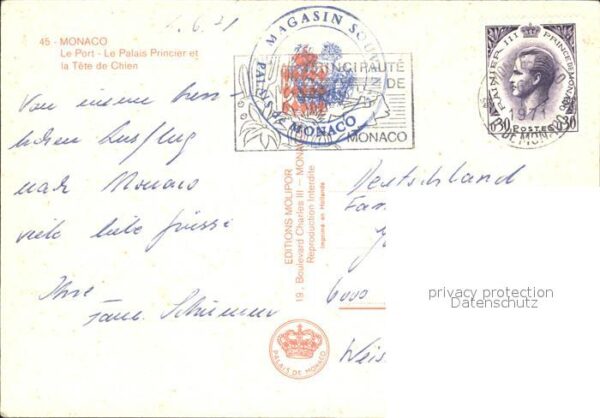 1.6.71
45 - MONACO
Le Port - Le Palais Princier et
la Tête de Chien
Von einem herr-
lichen Ausflug
nach Monaco
viele liebe Grüsse
Ihre
Fam.
MAGASIN SOUVENIRS
PALAIS DE MONACO
PRINCIPAUTÉ
DE
MONACO
RAINIER III PRINCE DE MONACO
1971
0,30 POSTES 0,30
EDITIONS MOLIPOR
19, Boulevard Charles III - MONACO
Reproduction Interdite
Imprimé en Hollande
PALAIS DE MONACO
Deutschland
Fam
6000
privacy protection
Datenschutz